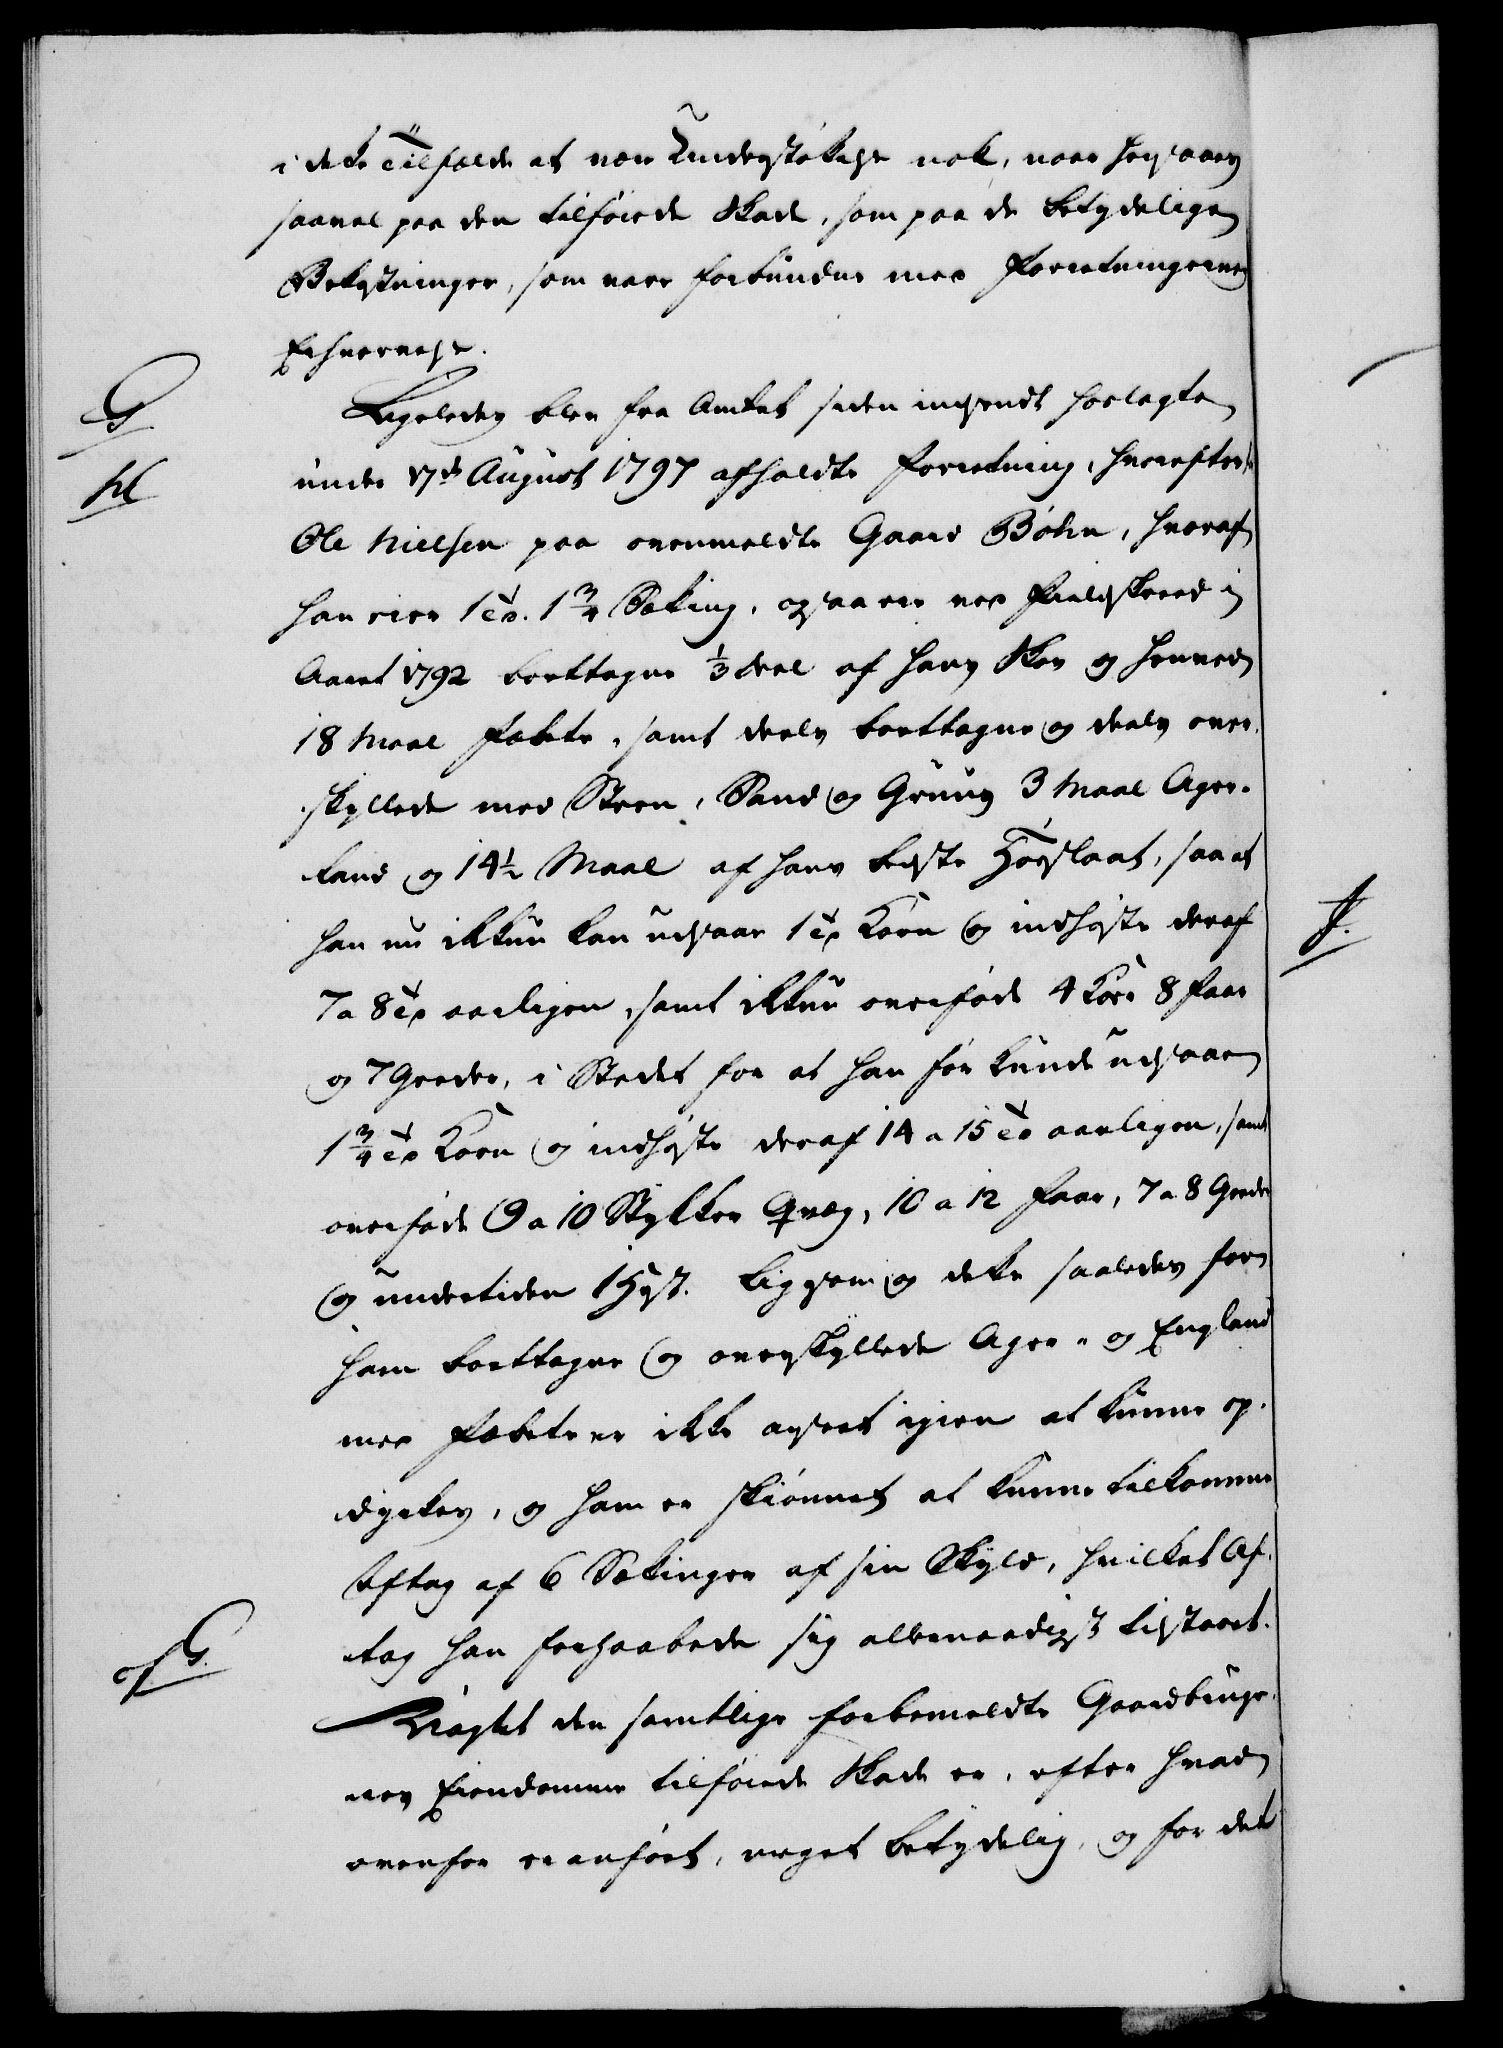 i dette Tilfælde at være Understøttelse nok, naar hensaaes
saavel paa den tilføiede Skade, som paa de betydelige
Bekostninger, som vare forbundne med Forretningernes
Erhvervelse.
Ligeledes blev fra Amtet siden indsendt hoslagte
under 17de August 1797 afholdte Forretning, hvorefter
Ole Nielsen paa ovenmeldte Gaard Bøhn, hvoraf
han eier 1 Td. 1 3/4 Sætting, ogsaa er ved Fieldskreed i
Aaret 1792 borttagne 1/3 deel af hans Skov og henved
18 Maal Fæbete, samt deels borttagne og deels over-
skyllede med Steen, Sand og Gruus 3 Maal Ager-
land og 14 1/2 Maal af hans bedste Høeslaat, saa at
han nu ikkun kan udsaae 1 Td Korn og indhøste deraf
7 a 8 Td aarligen, samt ikkun overføde 4 Køer 8 Faar
og 7 Geeder, i Stedet for at han før kunde udsaae
1 3/4 Td Korn og indhøste deraf 14 a 15 Td aarligen, samt
overføde 9 a 10 Stykker Qvæg, 10 a 12 Faar, 7 a 8 Geeder
og undertiden 1 Hest. Ligesom og dette saaledes for
ham borttagne og overskyllede Ager- og England
med Fæbete er ikke anseet igien at kunne op-
dyrkes, og ham er skiønnet at kunne tilkomme
Aftag af 6 Sættinger af sin Skyld, hvilket Af-
tag han forhaabede sig allernaadigst tilstaaet.
Uagtet den samtlige forbemeldte Gaardbruge-
res Eiendomme tilføiede Skade er, efter hvad
ovenfor er anført, meget betydelig, og for det
G
H
G.
J.